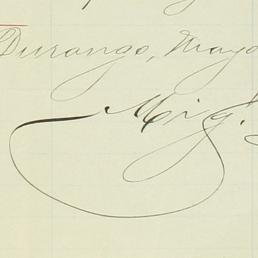 Durango, Mayo
Mig. G.